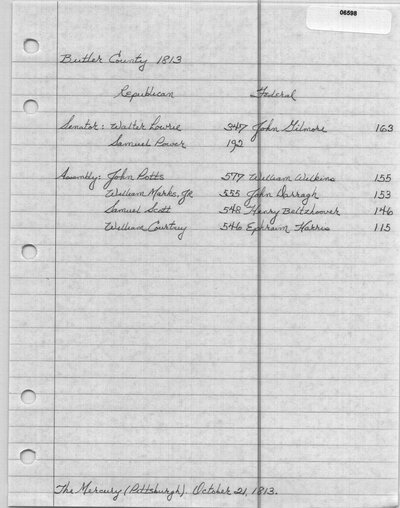 06598
Butler County 1813
Republican Federal
Senator: Walter Lowrie 347 John Gilmore 163
Samuel Power 192
Assembly: John Potts 577 William Wilkins 155
William Marks, Jr. 555 John Darragh 153
Samuel Scott 548 Henry Beltzhoover 146
William Courtney 546 Ephraim Harris 115
The Mercury (Pittsburgh). October 21, 1813.